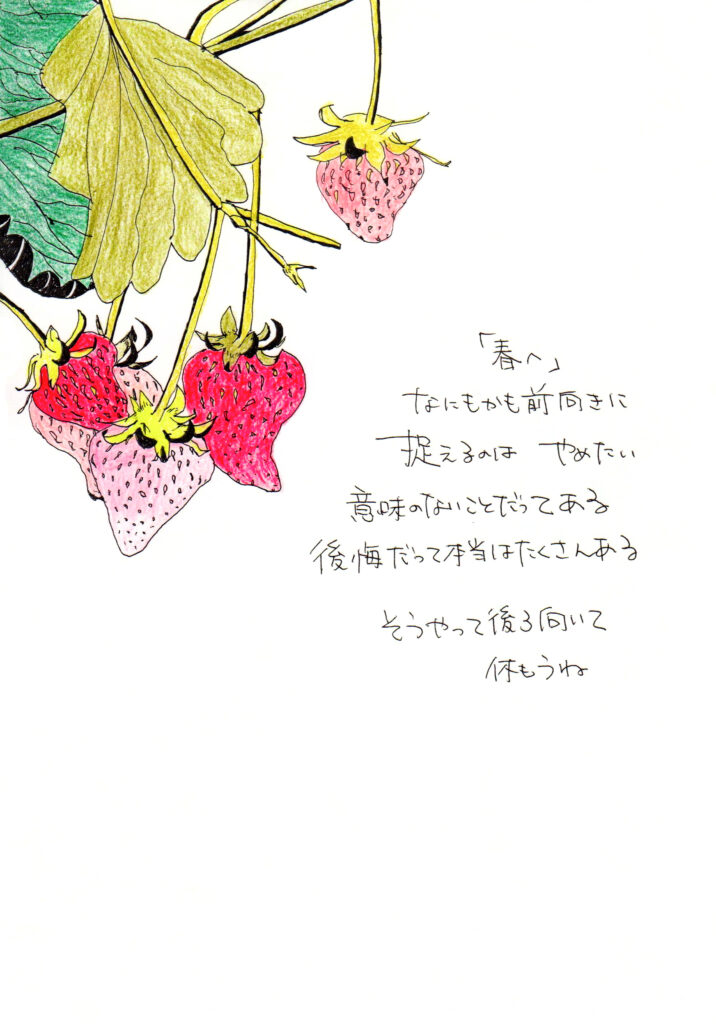 「春へ」
なにもかも前向きに
捉えるのは やめたい
意味のないことだってある
後悔だって本当はたくさんある
そうやって後ろ向いて
休もうね